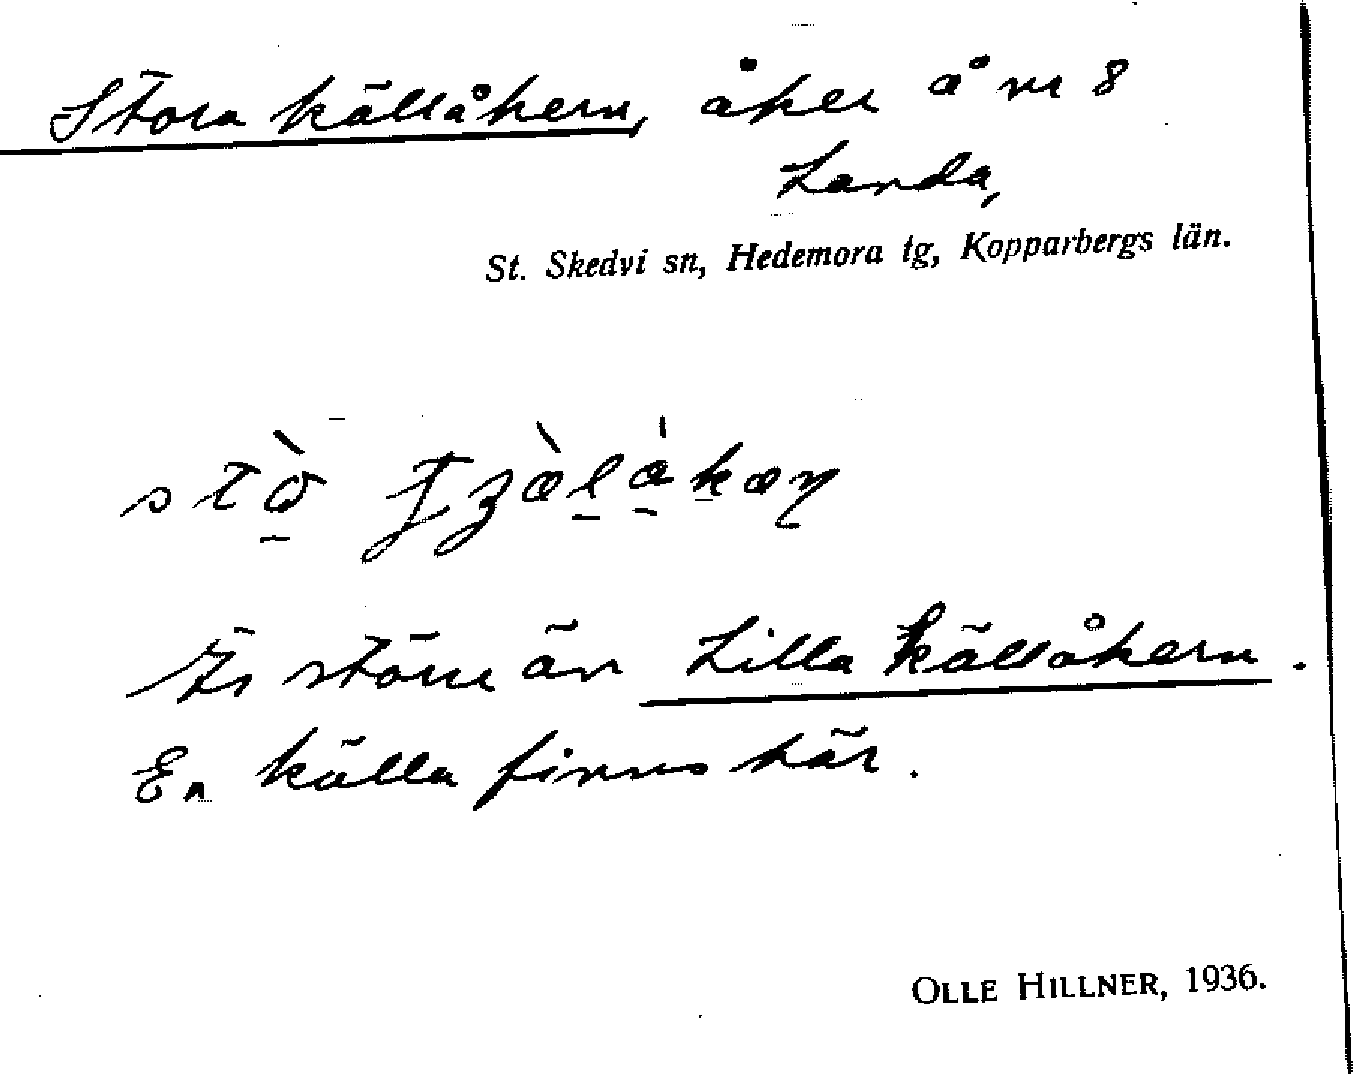 Stora källåkern, åker å nr 8
Landa,
St. Skedvi sn, Hedemora tg, Kopparbergs län.
Är större än Lilla källåkern.
En källa finns här.
OLLE HILLNER, 1936.